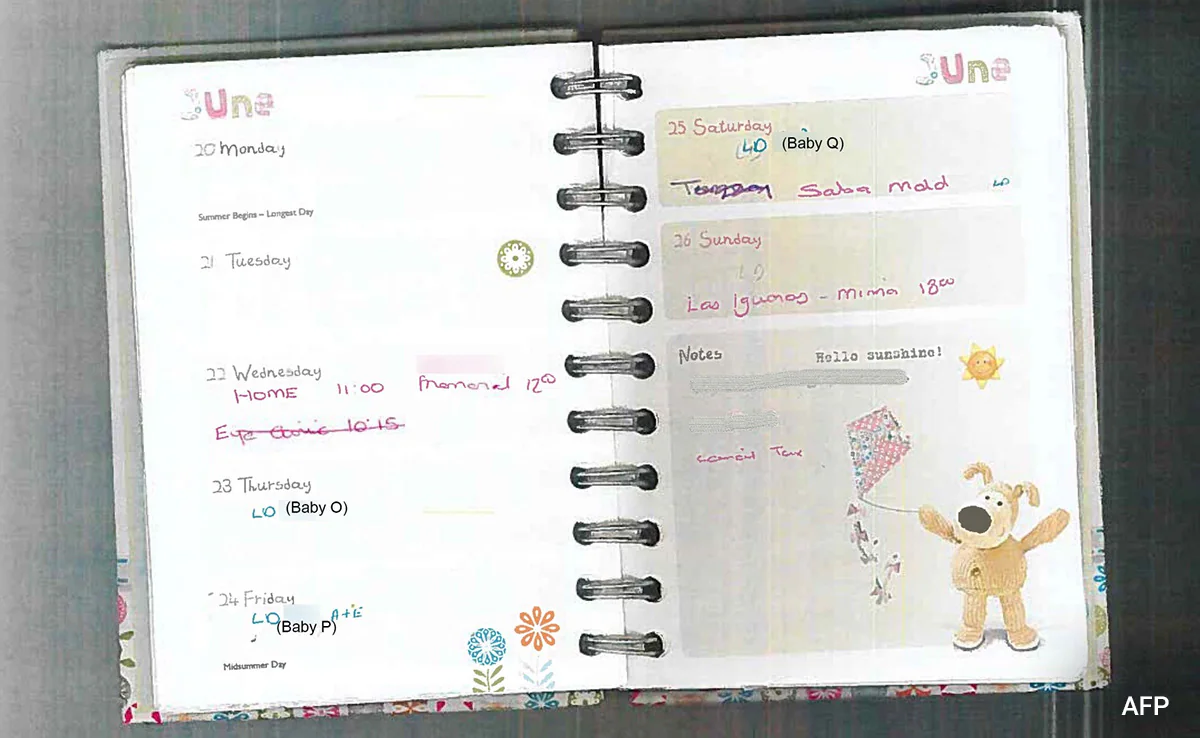 June
20 Monday
Summer Begins – Longest Day
21 Tuesday
22 Wednesday
HOME 11:00 12⁰⁰
Eye Clinic 10:15
23 Thursday
LD (Baby O)
24 Friday
LD A+E
(Baby P)
Midsummer Day
June
25 Saturday
LD (Baby Q)
Saba Mold LD
26 Sunday
LD
Las Iguanas – Mina 18⁰⁰
Notes Hello sunshine!
Council Tax
AFP